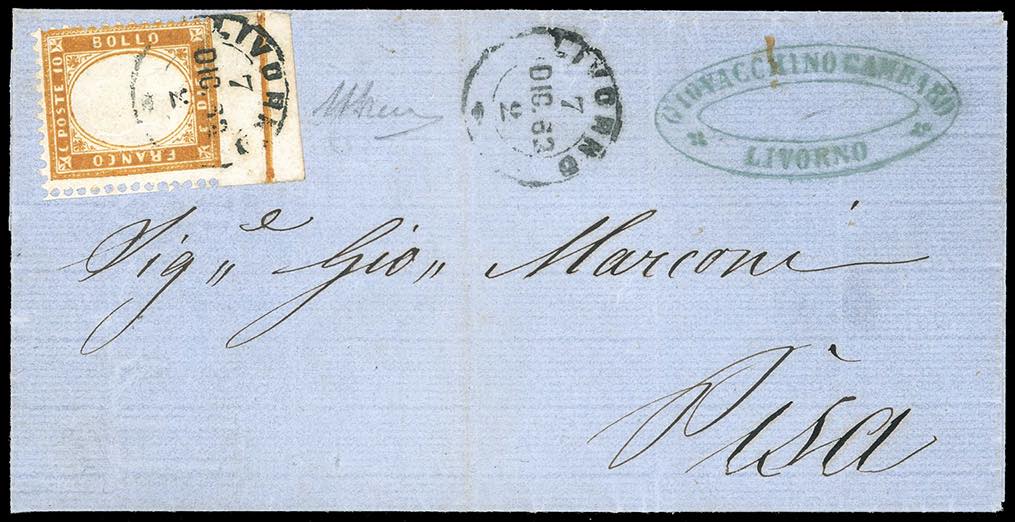 BOLLO
C. POSTE 10
FRANCO
LIVORNO
7
DIC 62
LIVORNO
7
DIC. 62
GIOVACCHINO GAMBARO
LIVORNO
Sigᵉ〃 Gio〃 Marconi
Pisa